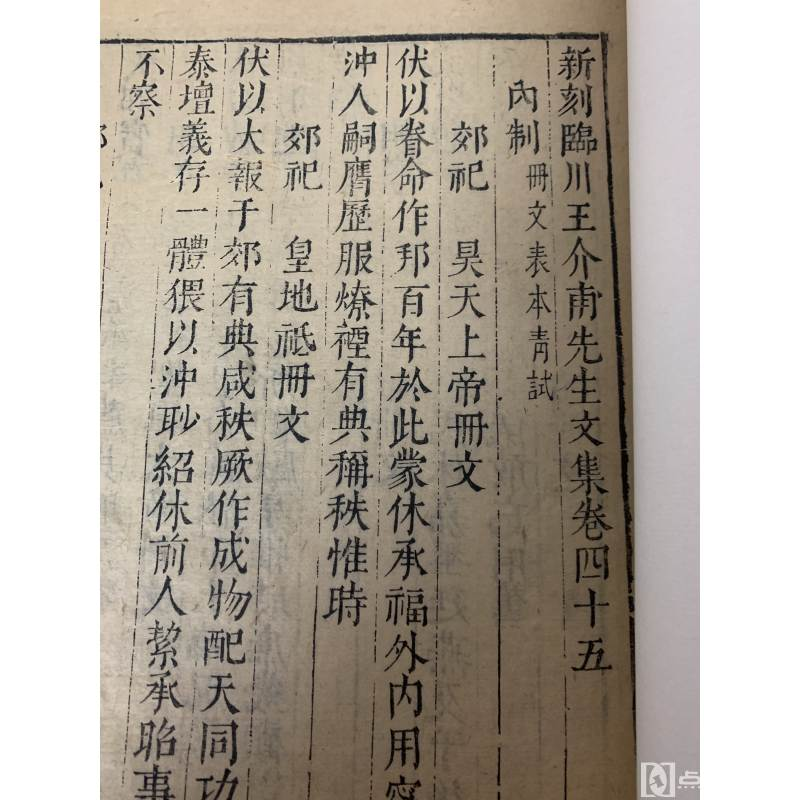 新刻臨川王介甫先生文集卷四十五
內制 冊文 表本 青試
郊祀 昊天上帝冊文
伏以眷命作邦百年於此蒙休承福外内用寧
沖人嗣膺歷服燎禋有典稱秩惟時
郊祀 皇地祗冊文
伏以大報于郊有典咸秩厥作成物配天同功
泰壇義存一體猥以沖眇紹休前人絜承昭事
不察
点